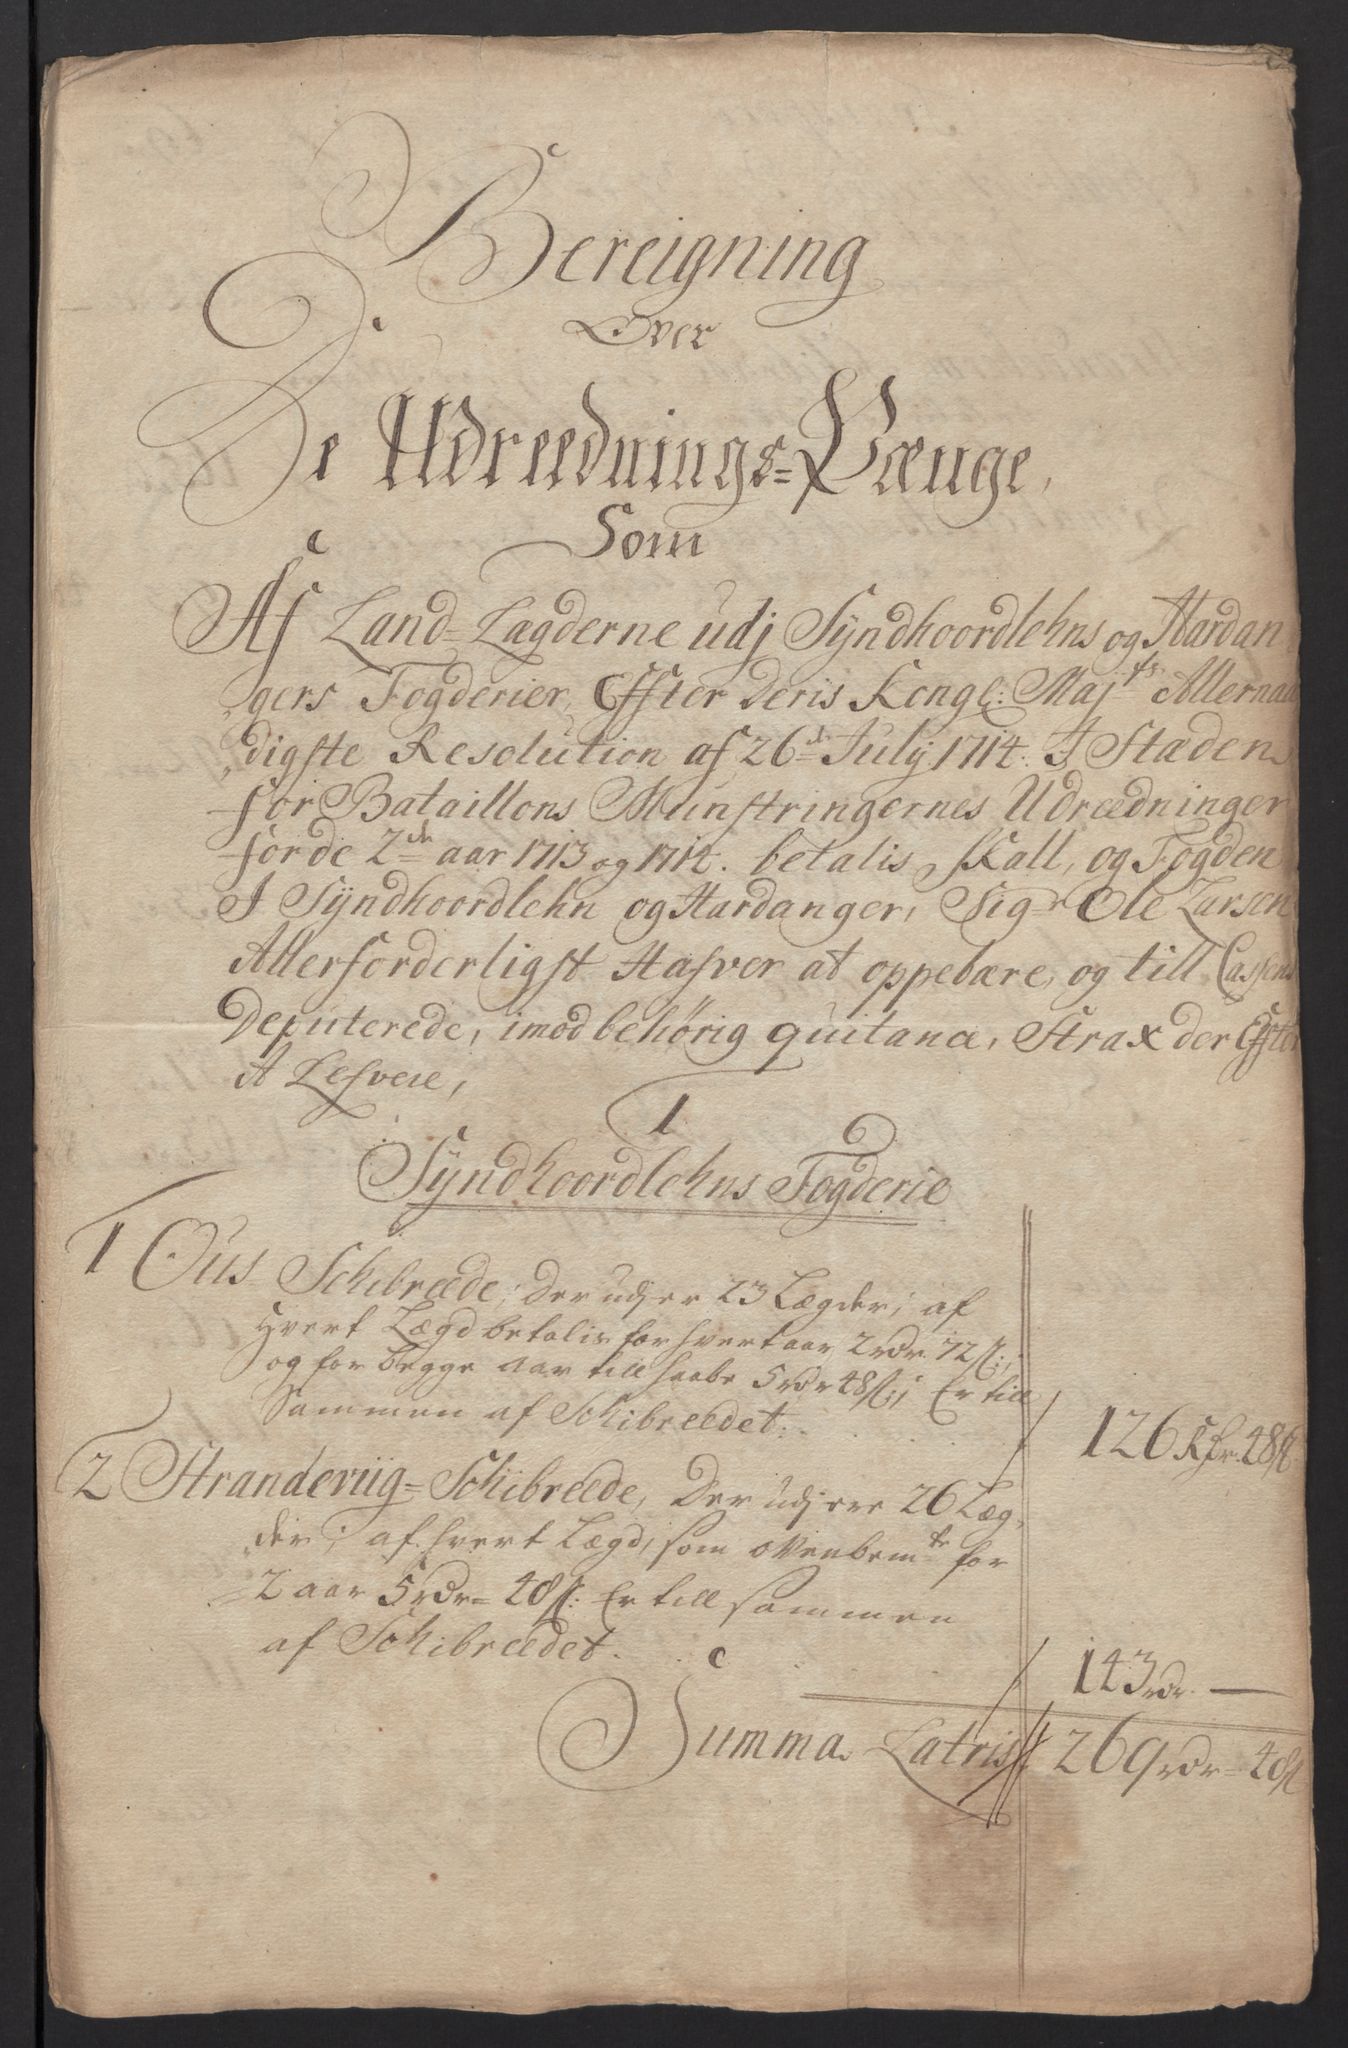 Bereigning
Over
De Udreednings=Penge,
Som
Af Land=Lagderne udj Syndhoordlehns og Hardan
gers Fogderier, Effter Deris Kongl: Maj:ts Allernaa
digste Resolution af 26de July 1714. I Staden
for Bataillons Munstringernes Udreedninger
for de 2de aar 1713 og 1714. betalis skall, og Fogden
I Syndhoordlehn og Hardanger, Sigr Ole Larsen
Allerforderligst Hafver at oppebære, og till Cassens
Deputerede, imod behörig quitance, Strax der Effter
A Lefvere,
1
Syndhoordlehns Fogderie
1 Ous Schibreede; Der udj er 23 Lægder; af
Hvert Lægd betalis for hvert aar 2 rdr. 72 ß;
og for begge aar till saabe 5 rdr 48 ß; Er till
Sammen af Schibreedet. 126 Rdr. 48 ß
2 Strandeviig=Schibreede, Der udj ere 26 Læg,
der; af hvert Lægd, som ovenbemte for
2 aar 5 rdr= 48 ß: Er till sammen
af Schibreedet. 143 rdr. —
Summa Latris 269 rdr= 48 ß